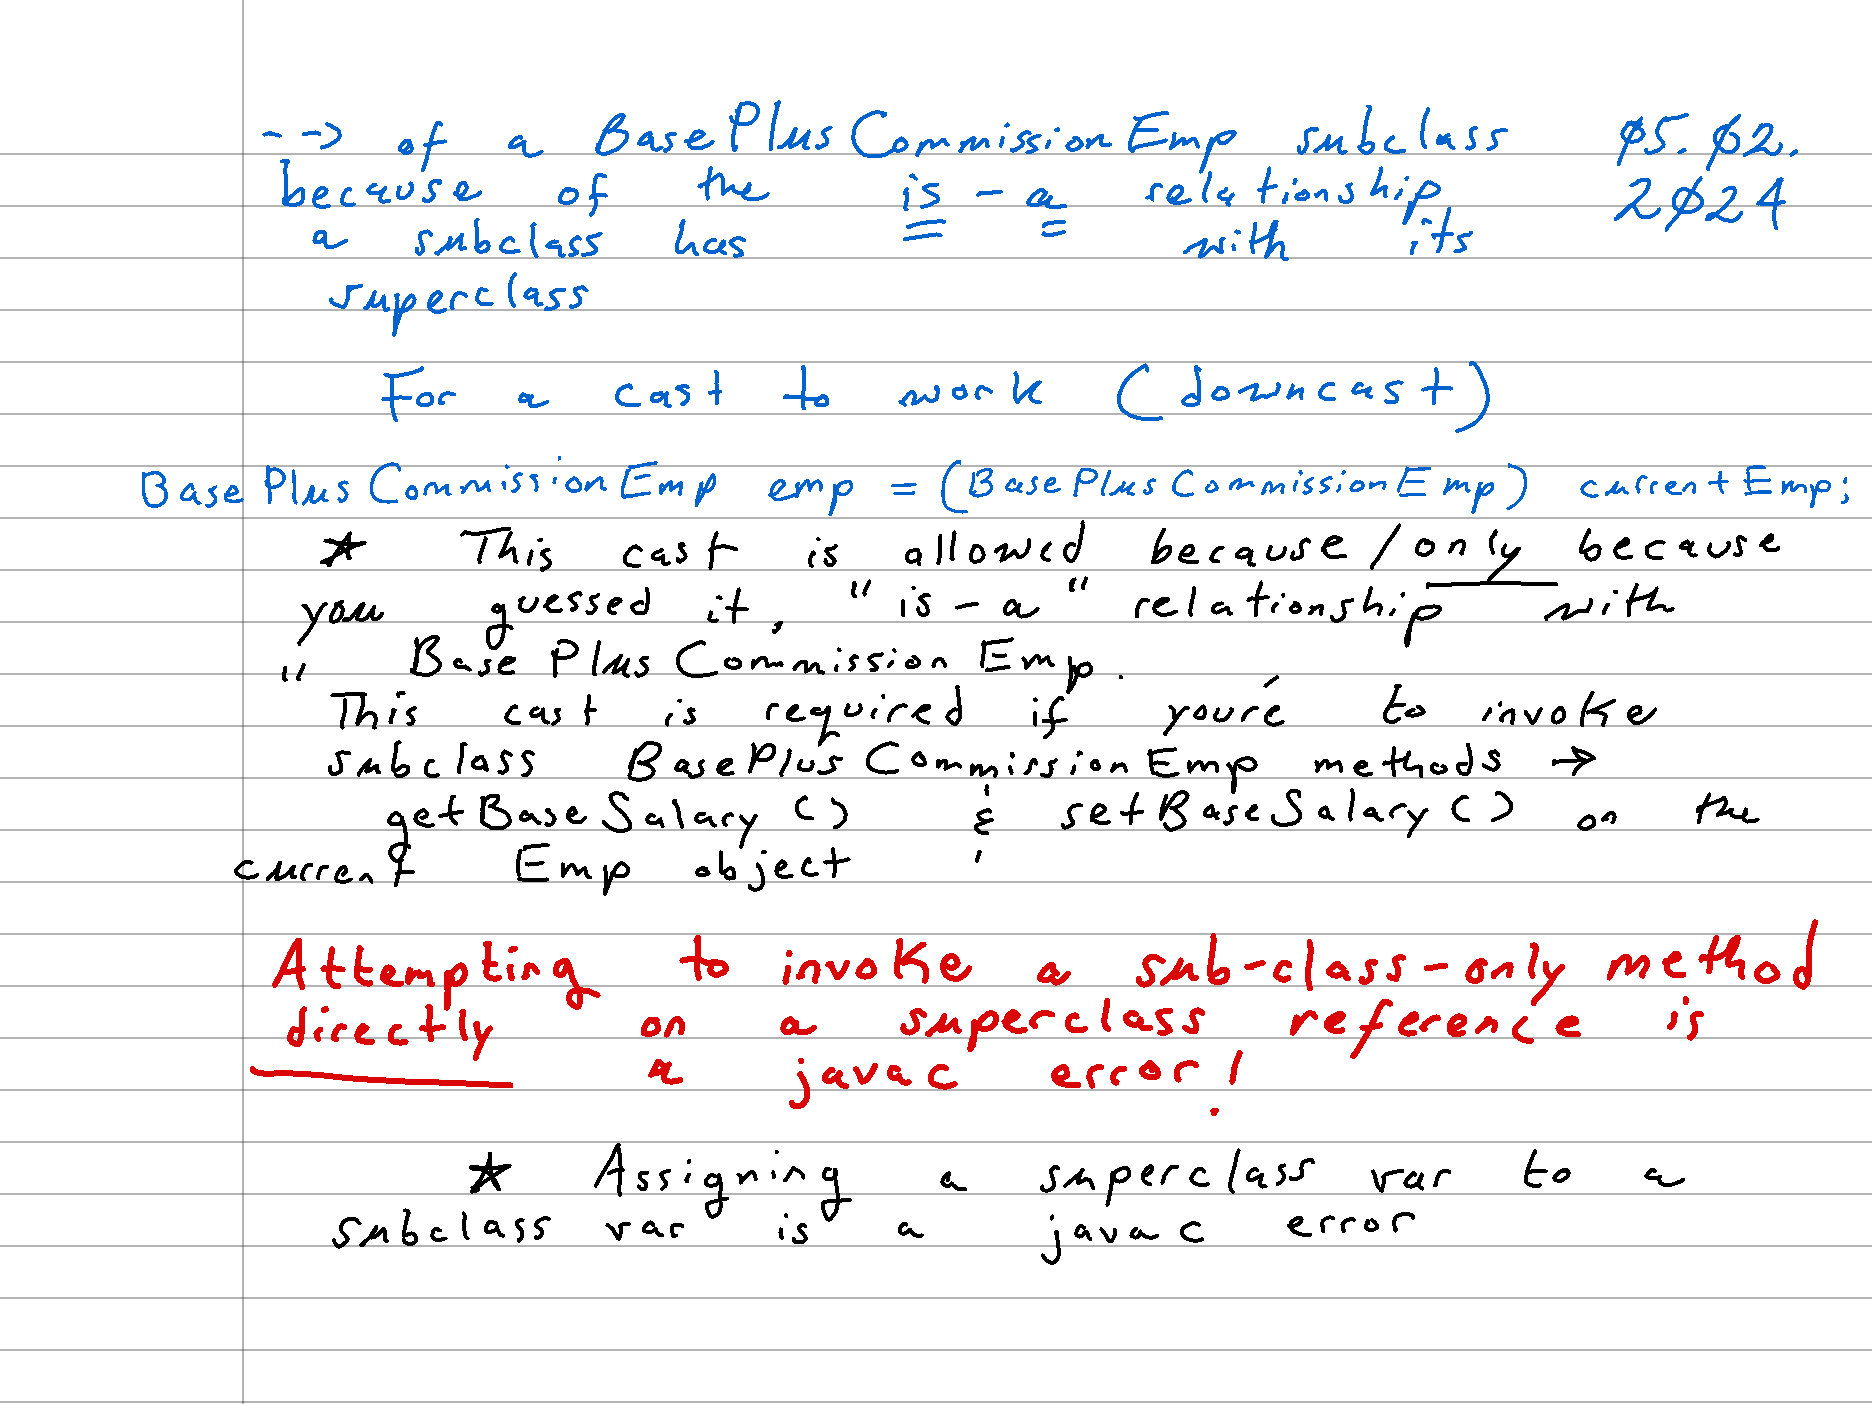 --> of a BasePlusCommissionEmp subclass ø5.ø2.
because of the is-a relationship 2ø24
a subclass has with its
superclass
For a cast to work (downcast)
BasePlusCommissionEmp emp = (BasePlusCommissionEmp) currentEmp;
* This cast is allowed because/only because
you guessed it, "is-a" relationship with
" BasePlusCommissionEmp.
This cast is required if you're to invoke
subclass BasePlusCommissionEmp methods →
getBaseSalary() & setBaseSalary() on the
current Emp object
Attempting to invoke a sub-class-only method
directly on a superclass reference is
a javac error!
* Assigning a superclass var to a
subclass var is a javac error